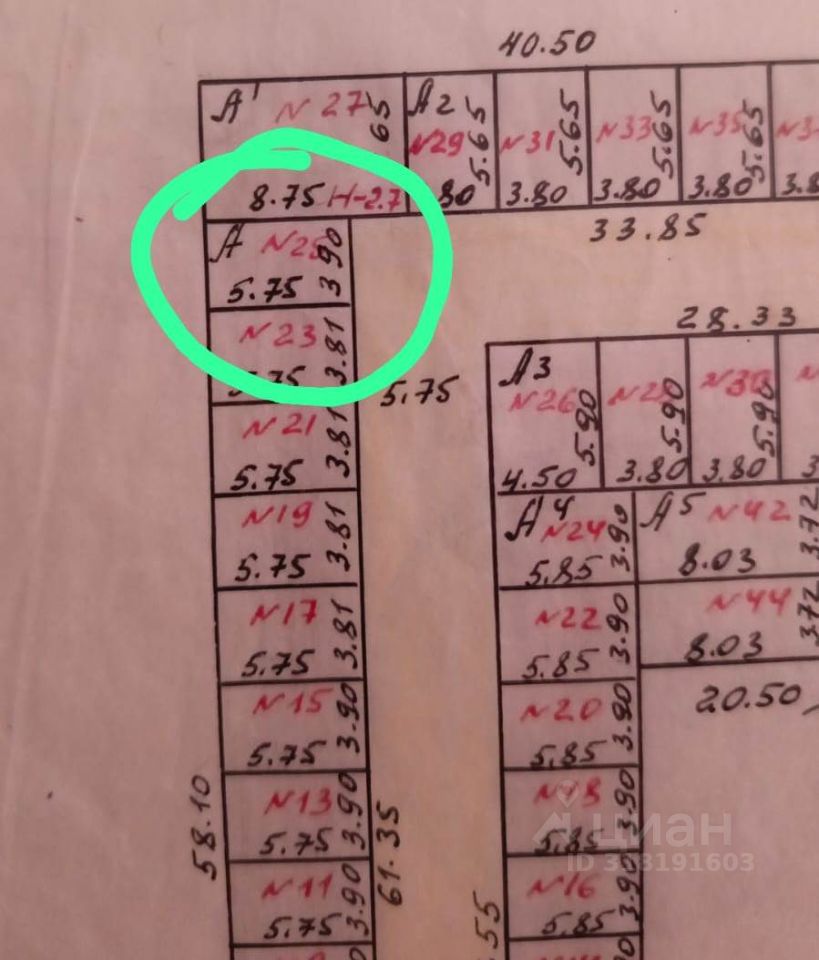 40.50
А' N 27 65
8.75 Н-2.7
А2 N29 5.65 80
N31 5.65 3.80
N33 5.65 3.80
N35 5.65 3.80
3.8
33.85
А N25 3.90
5.75
N23 3.81
5.75
5.75
N21 3.81
5.75
N19 3.81
5.75
N17 3.81
5.75
N15 3.90
5.75
N13 3.90
5.75
N11 3.90
5.75
58.10
61.35
28.33
А3
N26 5.90
4.50
5.90
3.80
N30 5.90
3.80
А4 N24 3.90
5.85
А5 N42 3.72
8.03
N22 3.90
5.85
N44 3.72
8.03
N20 3.90
5.85
20.50
N18 3.90
5.85
N16 3.90
5.85
55
циан